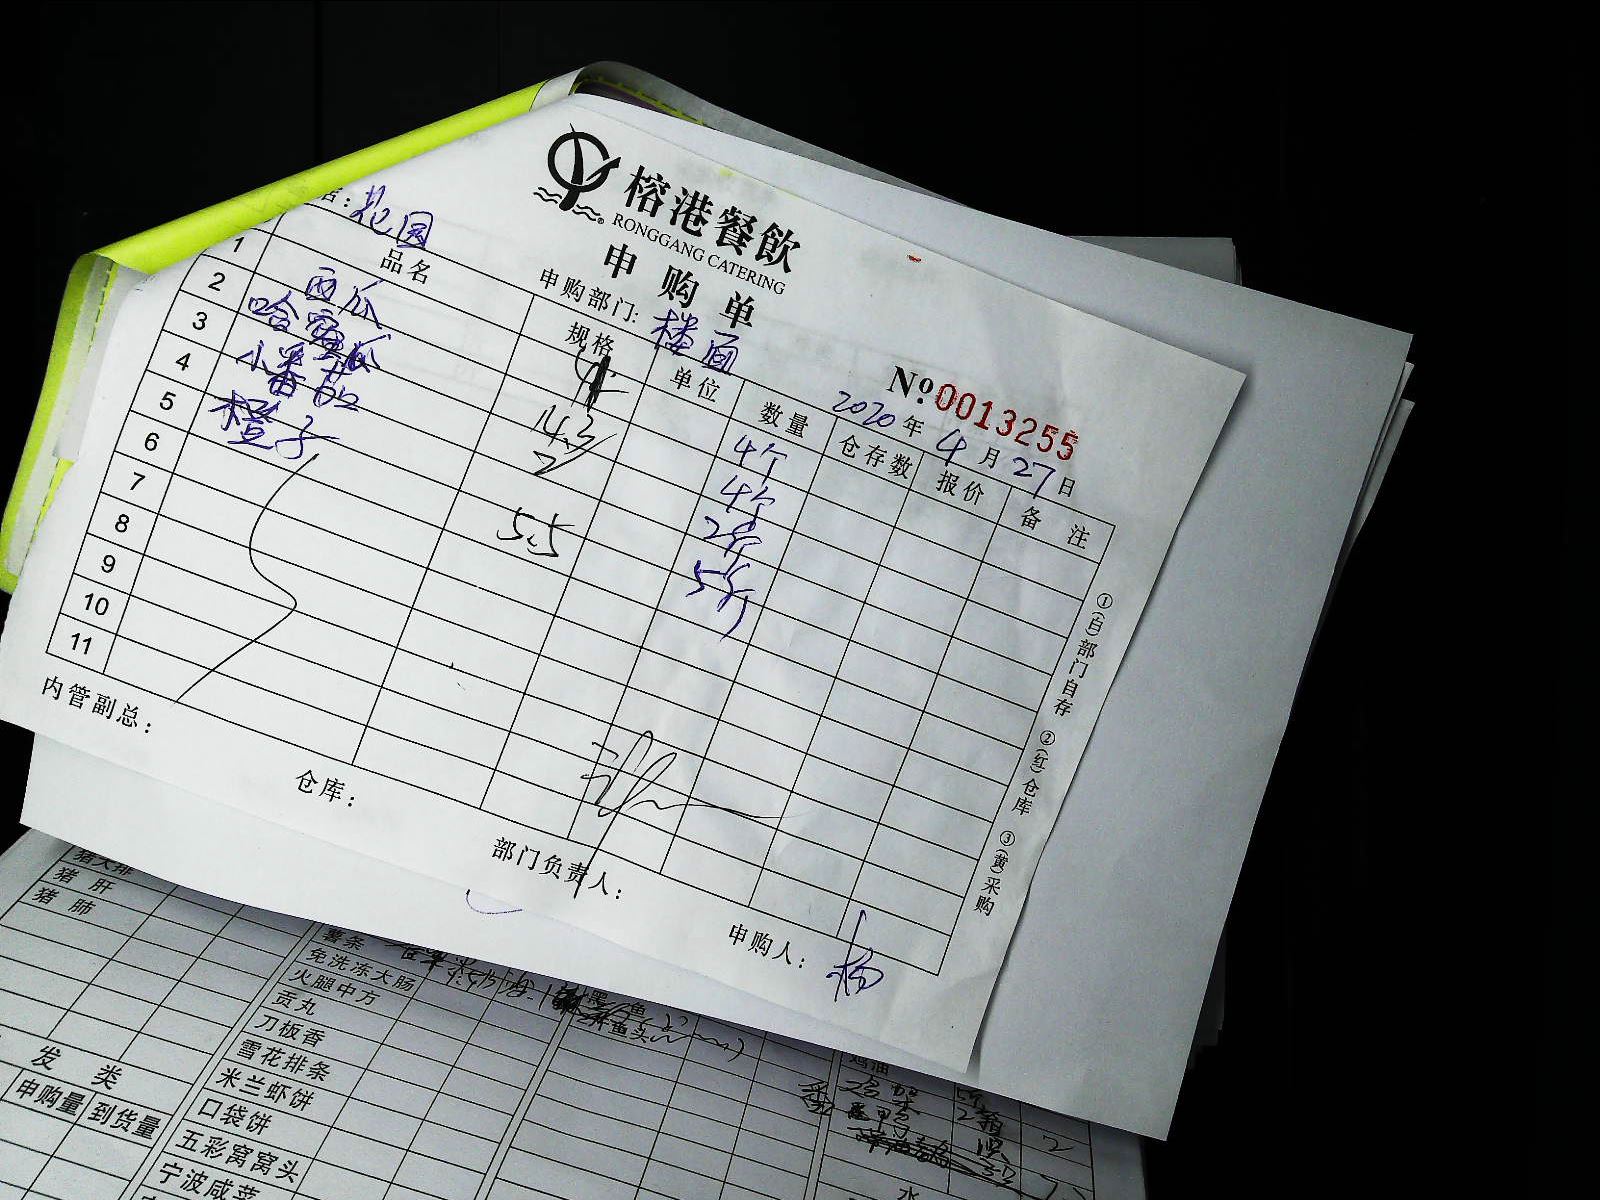 榕港餐飲
RONGGANG CATERING
申购单
店：花园
申购部门：楼面
No.0013255
2020年4月27日
品名 规格 单位 数量 仓存数 报价 备注
1 西瓜 4个
2 哈密瓜 14.3 4个
3 小番茄 2 2斤
4 橙子 5.5 5斤
5
6
7
8
9
10
11
①(白)部门自存 ②(红)仓库 ③(黄)采购
内管副总：
仓库：
部门负责人：
申购人：杨
猪大排
猪肝
猪肺
发类
申购量 到货量
薯条
免洗冻大肠
火腿中方
贡丸
刀板香
雪花排条
米兰虾饼
口袋饼
五彩窝窝头
宁波咸菜
鱼头
鸡油
水